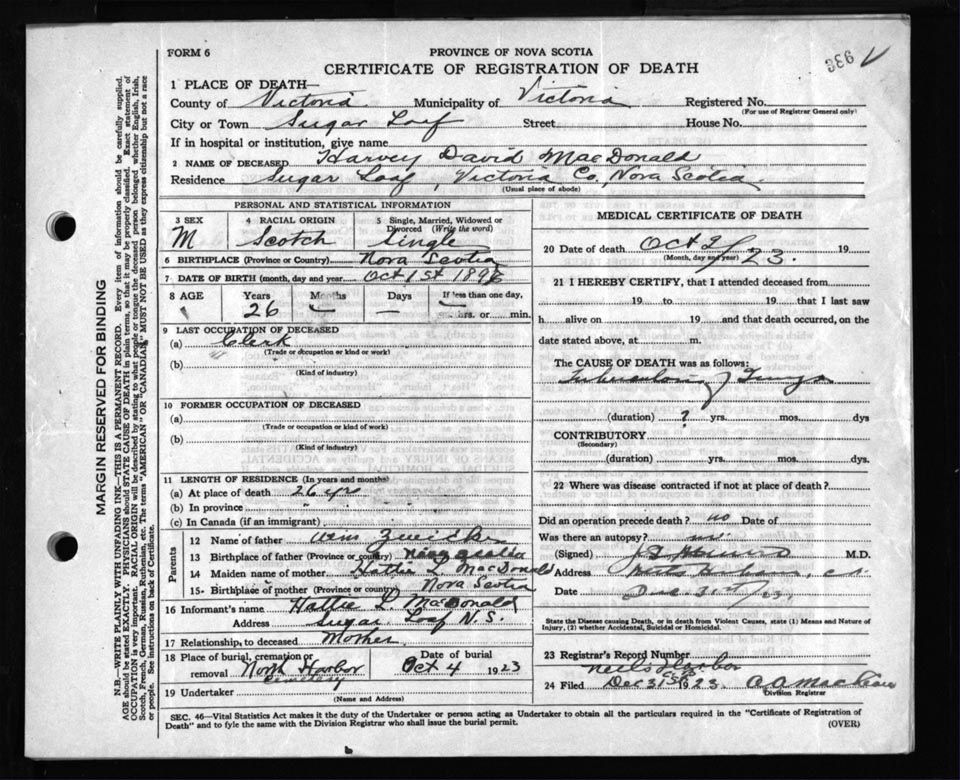 FORM 6
PROVINCE OF NOVA SCOTIA
CERTIFICATE OF REGISTRATION OF DEATH
336 V
1 PLACE OF DEATH—
County of Victoria Municipality of Victoria Registered No.
(For use of Registrar General only)
City or Town Sugar Loaf Street House No.
If in hospital or institution, give name
2 NAME OF DECEASED Harvey David MacDonald
Residence Sugar Loaf, Victoria Co, Nova Scotia
(Usual place of abode)
PERSONAL AND STATISTICAL INFORMATION
3 SEX M
4 RACIAL ORIGIN Scotch
5 Single, Married, Widowed or Divorced (Write the word) Single
6 BIRTHPLACE (Province or Country) Nova Scotia
7 DATE OF BIRTH (month, day and year) Oct 1st
8 AGE Years Months Days If less than one day,
26 — — hrs. or min.
9 LAST OCCUPATION OF DECEASED
(a) Clerk
(Trade or occupation or kind or work)
(b)
(Kind of industry)
10 FORMER OCCUPATION OF DECEASED
(a)
(Trade or occupation or kind or work)
(b)
(Kind of industry)
11 LENGTH OF RESIDENCE (In years and months)
(a) At place of death 26 yrs
(b) In province
(c) In Canada (if an immigrant)
Parents
12 Name of father Wm Zwicker
13 Birthplace of father (Province or country) Nova Scotia
14 Maiden name of mother Hattie L MacDonald
15- Birthplace of mother (Province or country) Nova Scotia
16 Informant's name Hattie L. MacDonald
Address Sugar Loaf N.S.
17 Relationship, to deceased Mother
18 Place of burial, cremation or removal North Harbor Cemetery
Date of burial Oct 4 1923
19 Undertaker
(Name and Address)
MEDICAL CERTIFICATE OF DEATH
20 Date of death Oct 23. 19
(Month, day and year)
21 I HEREBY CERTIFY, that I attended deceased from
19 to 19 that I last saw
h alive on 19 and that death occurred, on
date stated above, at m.
The CAUSE OF DEATH was as follows:
Tuberculosis of Lungs
(duration) ? yrs. mos. dys
CONTRIBUTORY
(Secondary)
(duration) yrs. mos. dys.
22 Where was disease contracted if not at place of death?
Did an operation precede death? no Date of
Was there an autopsy? no
(Signed) M.D.
Address Neils Harbour, C.B.
Date Dec 31st/23.
State the Disease Causing Death, or in death from Violent Causes, state (1) Means and Nature of Injury, (2) whether Accidental, Suicidal or Homicidal.
23 Registrar's Record Number
Neils Harbor
24 Filed Dec 31st 1923 A A MacLean
Division Registrar
SEC. 46—Vital Statistics Act makes it the duty of the Undertaker or person acting as Undertaker to obtain all the particulars required in the "Certificate of Registration of
Death" and to fyle the same with the Division Registrar who shall issue the burial permit.
(OVER)
MARGIN RESERVED FOR BINDING
N.B.—WRITE PLAINLY WITH UNFADING INK—THIS IS A PERMANENT RECORD. Every item of information should be carefully supplied.
AGE should be stated EXACTLY. PHYSICIANS should STATE CAUSE OF DEATH in plain terms, so that it may be properly classified. Exact statement of
OCCUPATION is very important. RACIAL ORIGIN will be described by stating to what people or tongue the deceased person belonged whether English, Irish,
Scotch, French, German, Russian, Ruthenian, etc. The terms "AMERICAN" OR "CANADIAN" MUST NOT BE USED as they express citizenship but not a race
or people. See instructions on back of Certificate.